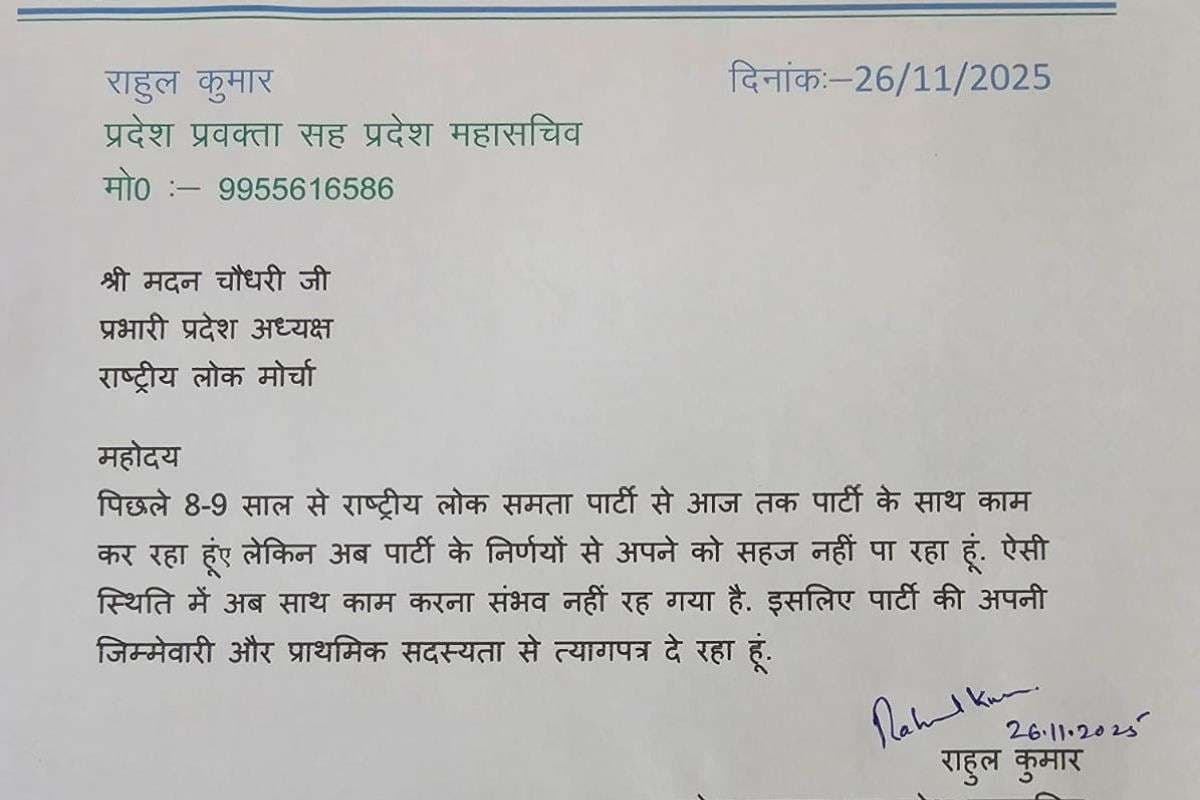 राहुल कुमार
दिनांकः–26/11/2025
प्रदेश प्रवक्ता सह प्रदेश महासचिव
मो0 :– 9955616586
श्री मदन चौधरी जी
प्रभारी प्रदेश अध्यक्ष
राष्ट्रीय लोक मोर्चा
महोदय
पिछले 8-9 साल से राष्ट्रीय लोक समता पार्टी से आज तक पार्टी के साथ काम
कर रहा हूंए लेकिन अब पार्टी के निर्णयों से अपने को सहज नहीं पा रहा हूं. ऐसी
स्थिति में अब साथ काम करना संभव नहीं रह गया है. इसलिए पार्टी की अपनी
जिम्मेवारी और प्राथमिक सदस्यता से त्यागपत्र दे रहा हूं.
Rahul Kumar
26.11.2025
राहुल कुमार